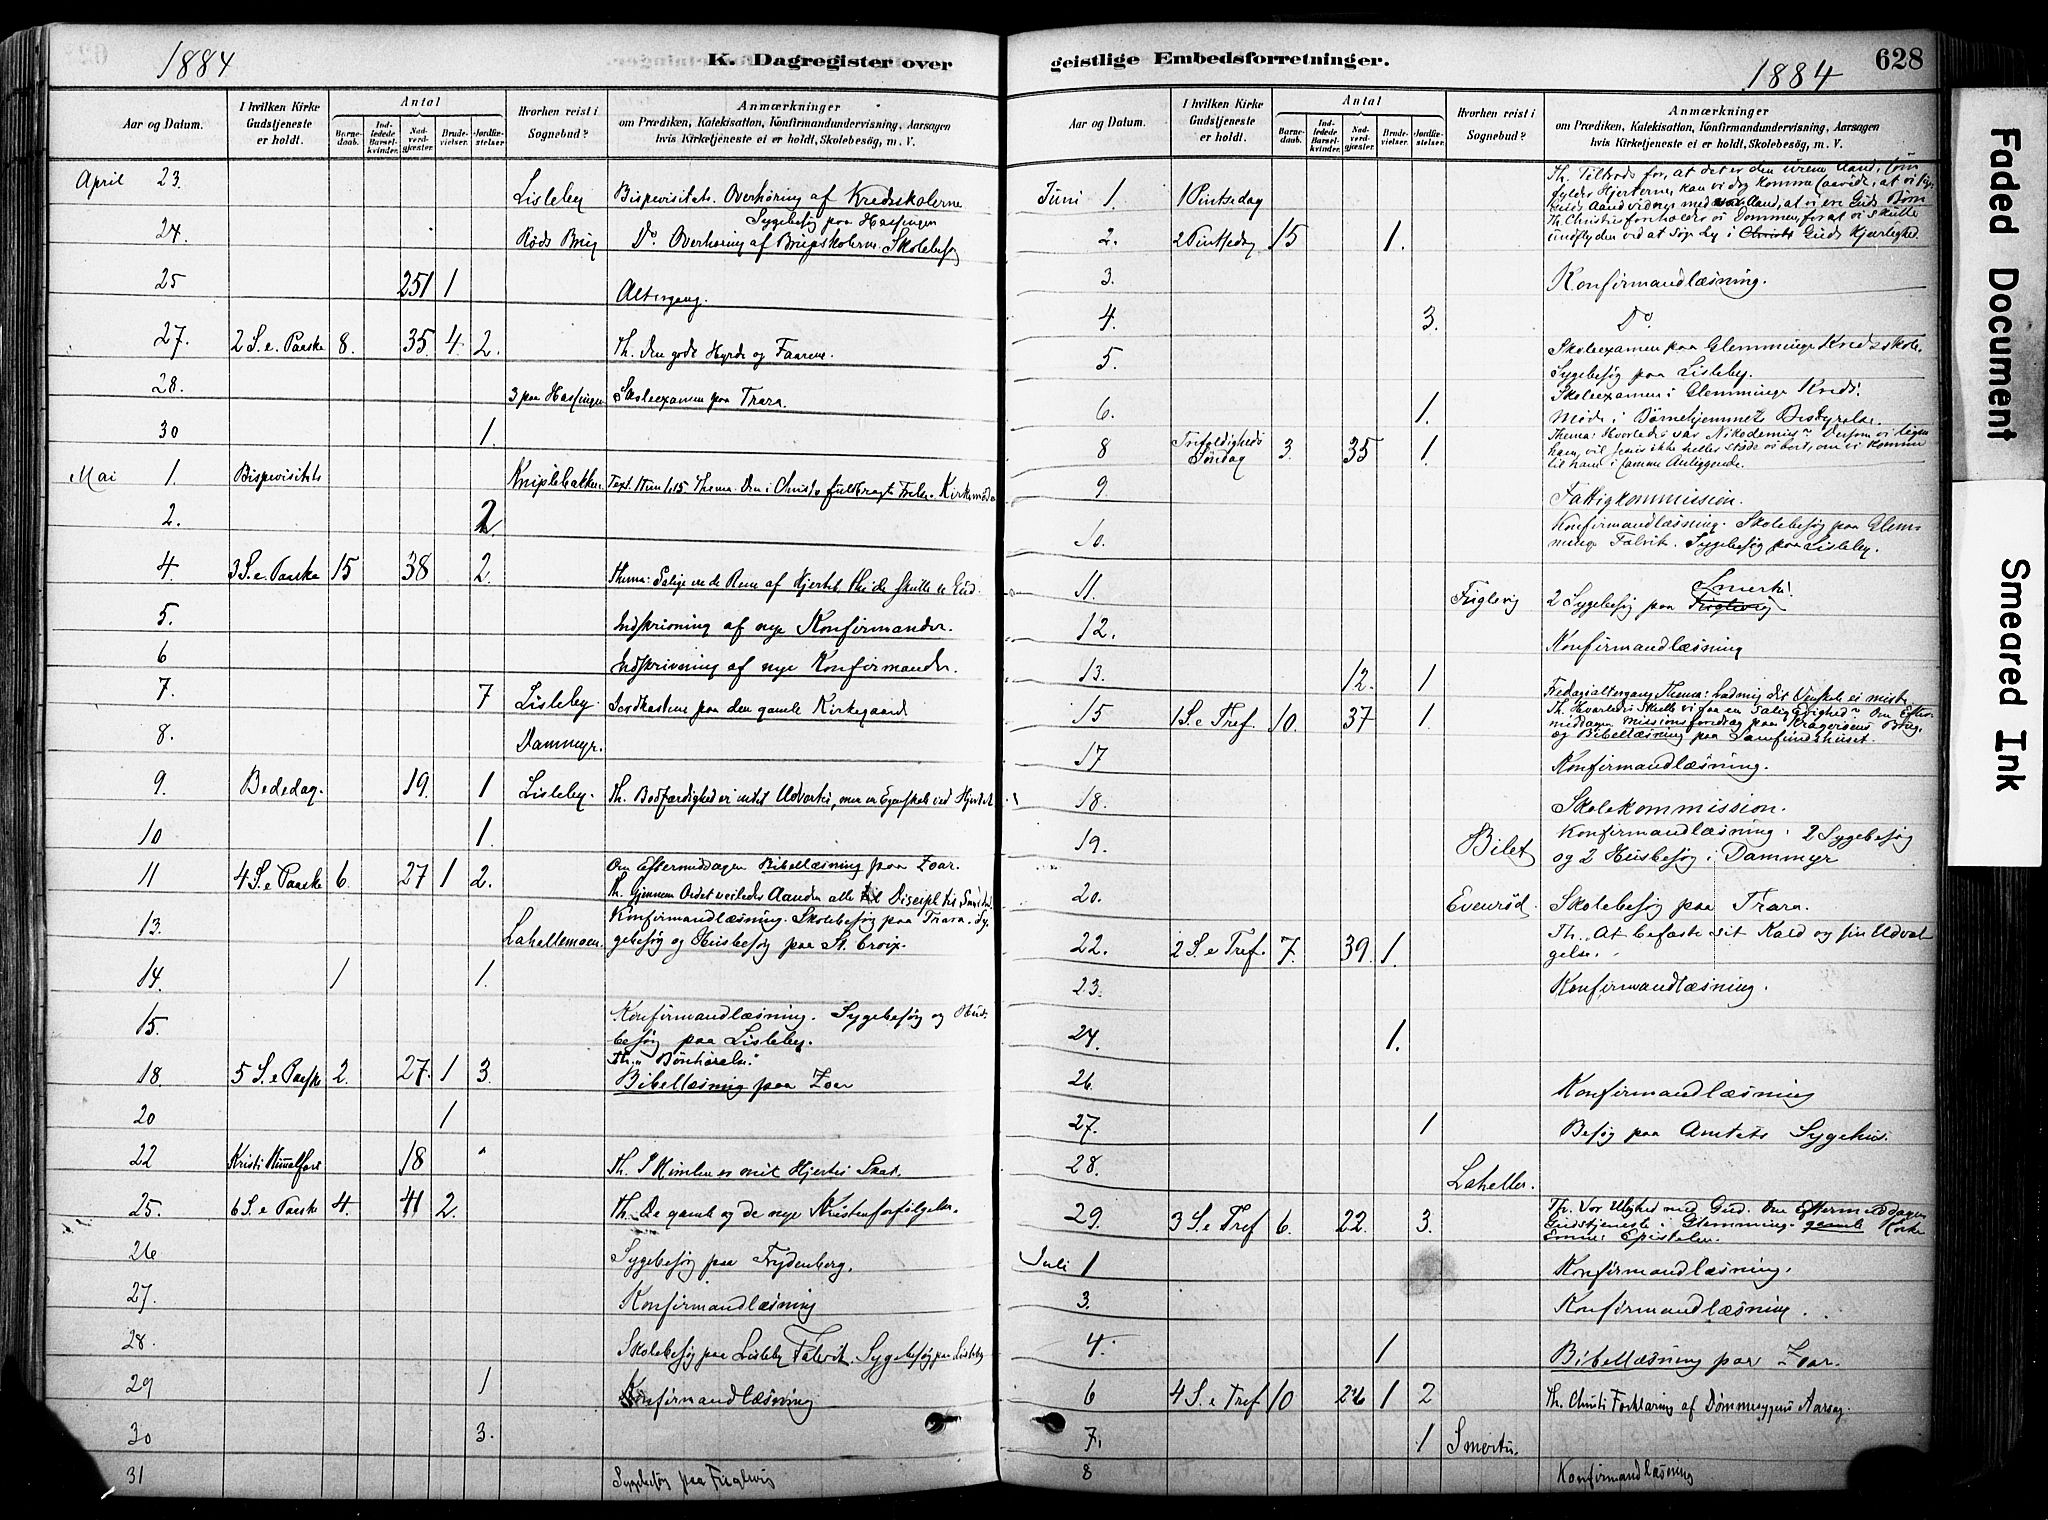 1884
K. Dagregister over
Aar og Datum.
I hvilken Kirke Gudstjeneste er holdt.
Antal
Barnedaab.
Indledede Barselkvinder.
Nadverdgjæster.
Brudevielser.
Jordfæstelser.
Hvorhen reist i Sognebud?
Anmærkninger
om Prædiken, Katekisation, Konfirmandundervisning, Aarsagen
hvis Kirketjeneste ei er holdt, Skolebesøg, m. V.
April 23. Lisleby Bispevisitats. Overhøring af Kredsskolerne
Sygebesøg paa
24. Røds Brug Do Overhøring af Skolebesøg
25 251 1 Altergang.
27. 2 S. e. Paaske 8. 35. 4. 2. Th. Den gode Hyrde og Faarene.
28. 3 paa Skoleexamen paa Trara.
30 1.
Mai 1. Bispevisitats Text. Thema. Den i Christo fuldbragte Kirkemøde
2. 2.
4. 3 S. e. Paaske 15 38 2. Thema: Salige ere de Rene af Hjertet thi de skulle se Gud.
5. Indskrivning af nye Konfirmander.
6 Indskrivning af nye Konfirmander.
7. 7 Lisleby. Jordkastene paa den gamle Kirkegaard
8. Dammyr.
9. Bededag. 19. 1 Lisleby. Th. Bodfærdighed er intet Udvortes, men en Egenskab ved Hjertet
10 1.
11 4 S. e Paaske 6. 27 1 2. Om Eftermiddagen Bibellæsning paa Zoar.
Th. Gjennem Ordet veileder Aanden alle
13. Lahellemoen. Konfirmandlæsning. Skolebesøg paa Trara. Sy-
gebesøg og Husbesøg paa St. Croix.
14. 1 1.
15. Konfirmandlæsning. Sygebesøg og Hus-
besøg paa Lisleby.
Th. "Bønhørelse."
18. 5 S. e Paaske 2. 27. 1 3. Bibellæsning paa Zoar
20 1
22 Kristi Himmelfart 18 Th. I Himlen er mit Hjertes Skat.
25. 6 S. e Paaske 4. 41 2. Th. De gamle og de nye Kristenforfølgelser.
26 Sygebesøg paa Frydenberg.
27. Konfirmandlæsning
28. Skolebesøg paa Lisleby Fabrik. Sygebesøg paa Lisleby
29 1 Konfirmandlæsning
30 3.
31 Sygebesøg paa Fuglevig
geistlige Embedsforretninger.
628
1884
Aar og Datum.
I hvilken Kirke Gudstjeneste er holdt.
Antal
Barnedaab.
Indledede Barselkvinder.
Nadverdgjæster.
Brudevielser.
Jordfæstelser.
Hvorhen reist i Sognebud?
Anmærkninger
om Prædiken, Katekisation, Konfirmandundervisning, Aarsagen
hvis Kirketjeneste ei er holdt, Skolebesøg, m. V.
Juni 1. 1 Pintsedag Th. Tiltrods for, at det er den urene Aand, som
fylder Hjerterne, kan vi dog komme saavidt, at vi
Aand vidner med vor Aand, at vi ere Guds Børn
2. 2 Pintsedag 15 1. Th. Christus forholder os Dommen, for at vi skulle
undflyden ved at søge Ly i Guds Kjærlighed.
3. Konfirmandlæsning.
4. 3. Do.
5. Skoleexamen paa Glemminge Kredsskole.
Sygebesøg paa Lisleby.
6. 1. Skoleexamen i Glemminge Kreds.
Møde i Børnehjemmets Bestyrelse.
8 Trefoldigheds Søndag 3. 35 1. Thema: Hvorledes var Nikodemus? Dersom vi ligne
ham, vil Jesus ikke heller støde os bort, om vi komme
til ham i samme Anliggende.
9. Fattigkommission.
10. Konfirmandlæsning. Skolebesøg paa Glem-
minge Fabrik. Sygebesøg paa Lisleby.
11. Fuglevig 2 Sygebesøg paa Fuglevig Smertu.
12. Konfirmandlæsning
13. 12. 1 Fredagsaltergang Thema:
15 1 S. e Tref. 10. 37 1. Th. Hvorledes skulle vi faa en salig Evighed? Om Efter-
middagen Missionsforedrag paa Kragerøens Brug,
og Bibellæsning paa Samfundshuset.
17 Konfirmandlæsning.
18. Skolekommission.
19. Bilet Konfirmandlæsning. 2 Sygebesøg
og 2 Husbesøg i Dammyr
20. Evenrød. Skolebesøg paa Trara.
22. 2 S. e Tref. 7. 39. 1. Th. At befæste sit Kald og sin Udvæl
gelse.
23. Konfirmandlæsning.
24. 1.
26. Konfirmandlæsning
27. 1 Besøg paa Amtets Sygehus.
28. Lahellen.
29. 3 S. e Tref 6. 22. 3. Th. Vor Ulighed med Gud. Om Eftermiddagen
Gudstjeneste i Glemminge gamle Kirke
Emne: Epistelen.
Juli 1 Konfirmandlæsning.
3. Konfirmandlæsning.
4. 1 Bibellæsning paa Zoar.
6 4 S. e Tref 10 26 1 2 Th. Christi Forklaring af Dømmesygens Aarsag.
7. 1 Smertu.
8 Konfirmandlæsning
Faded Document
Smeared Ink